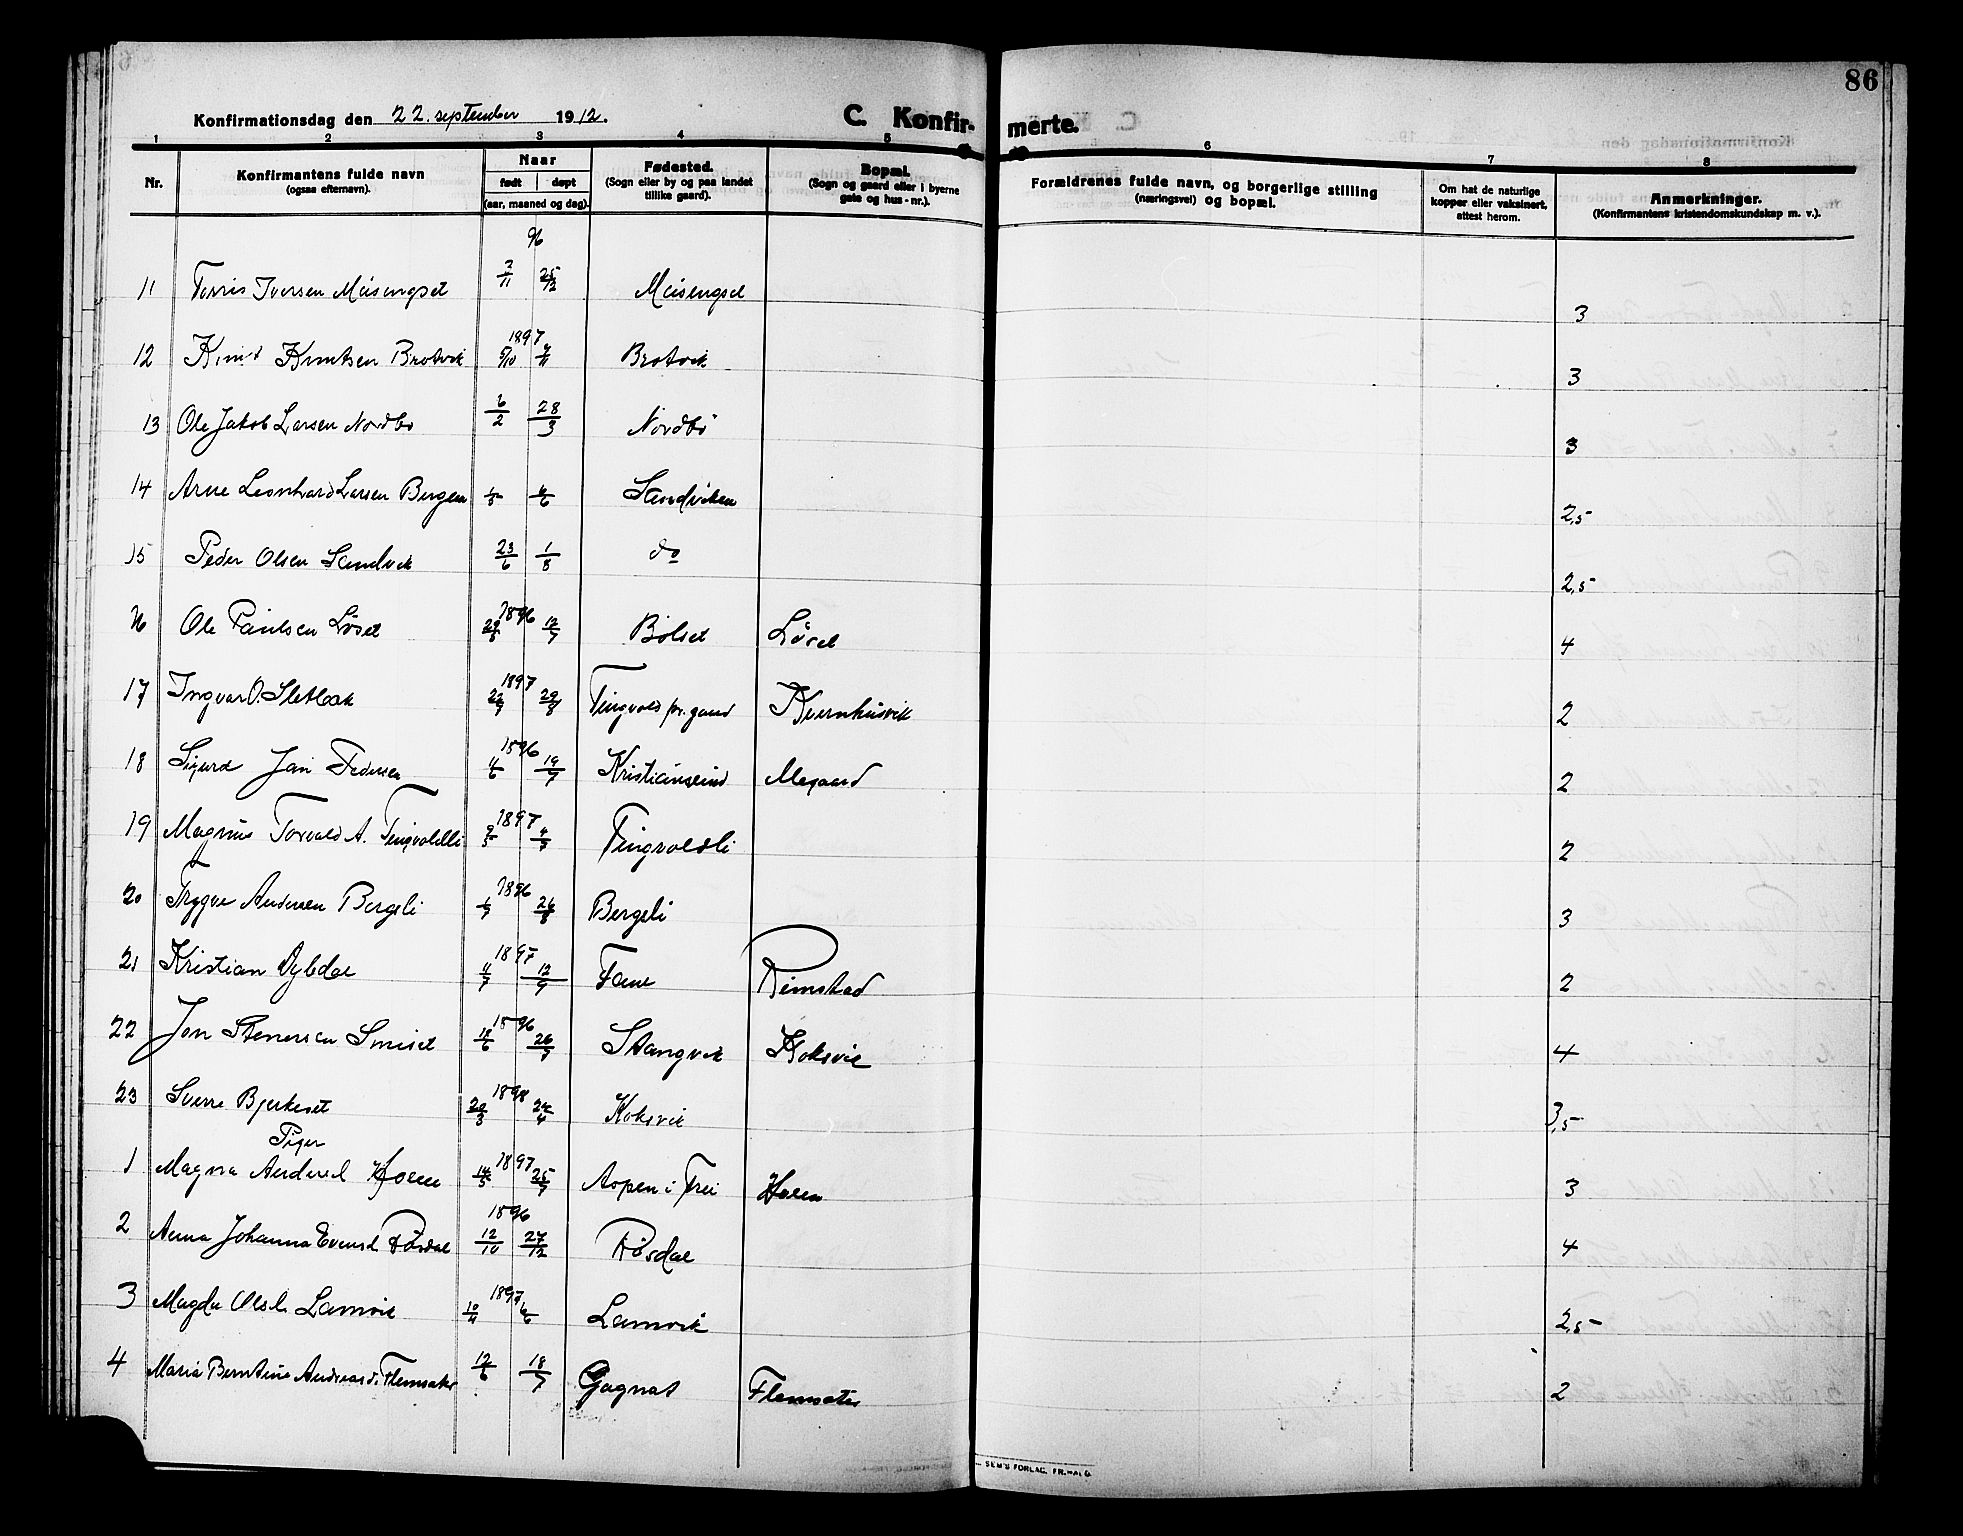 86
Konfirmationsdag den 22. september 1912.
C. Konfirmerte.
1 2 3 4 5 6 7 8
Nr.
Konfirmantens fulde navn
(ogsaa efternavn).
Naar
født døpt
(aar, maaned og dag).
Fødested.
(Sogn eller by og paa landet
tillike gaard).
Bopæl.
(Sogn og gaard eller i byerne
gate og hus-nr.).
Forældrenes fulde navn, og borgerlige stilling
(næringsvei) og bopæl.
Om hat de naturlige
kopper eller vaksinert,
attest herom.
Anmerkninger.
(Konfirmantens kristendomskundskap m. v.).
96
11 Iversen Meisingset 2/11 25/12 Meisingset 3
1897
12 Knut Knutsen Brotvik 5/10 7/11 Brotvik 3
13 Ole Jakob Larsen Nordbø 6/2 28/3 Nordbø 3
14 Arne Leonhard Larsen Bergem 6/6 Sandviken 2,5
15 Peder Olsen Sandvik 23/6 1/8 do 2,5
1896
16 Ole Paulsen Løset 12/7 Bølset Løset 4
1897
17 Ingvar O. Sletbak 22/7 29/8 Tingvold pr.gaard Kvernhusvik 2
1896
18 Sigurd Jan Pedersen 11/6 19/7 Kristiansund Megaard 2
1897
19 Magnus Torvald A. Tingvoldli 9/5 4/7 Tingvoldli 2
1896
20 Trygve Andersen Bergeli 1/7 26/8 Bergeli 3
1897
21 Kristian Dybdal 11/7 12/9 Fane Rimstad 2
1896
22 Jon Stenersen Smiset 18/6 26/7 Stangvik Koksvik 4
1898
23 Sverre Bjerkeset 20/3 24/4 Koksvik 3,5
Piger
1897
1 Magna Andersd Holen 14/5 25/7 Aspen i Frei Holen 3
1896
2 Anna Johanna Evensd Røsdal 12/10 27/12 Røsdal 4
1897
3 Magda Olsd. Lamvik 10/4 6/6 Lamvik 2,5
4 Maria Berntine Andreasd. Flemsæter 12/6 18/7 Gagnat Flemsæter 2
SEM'S FORLAG, FR.HALD.